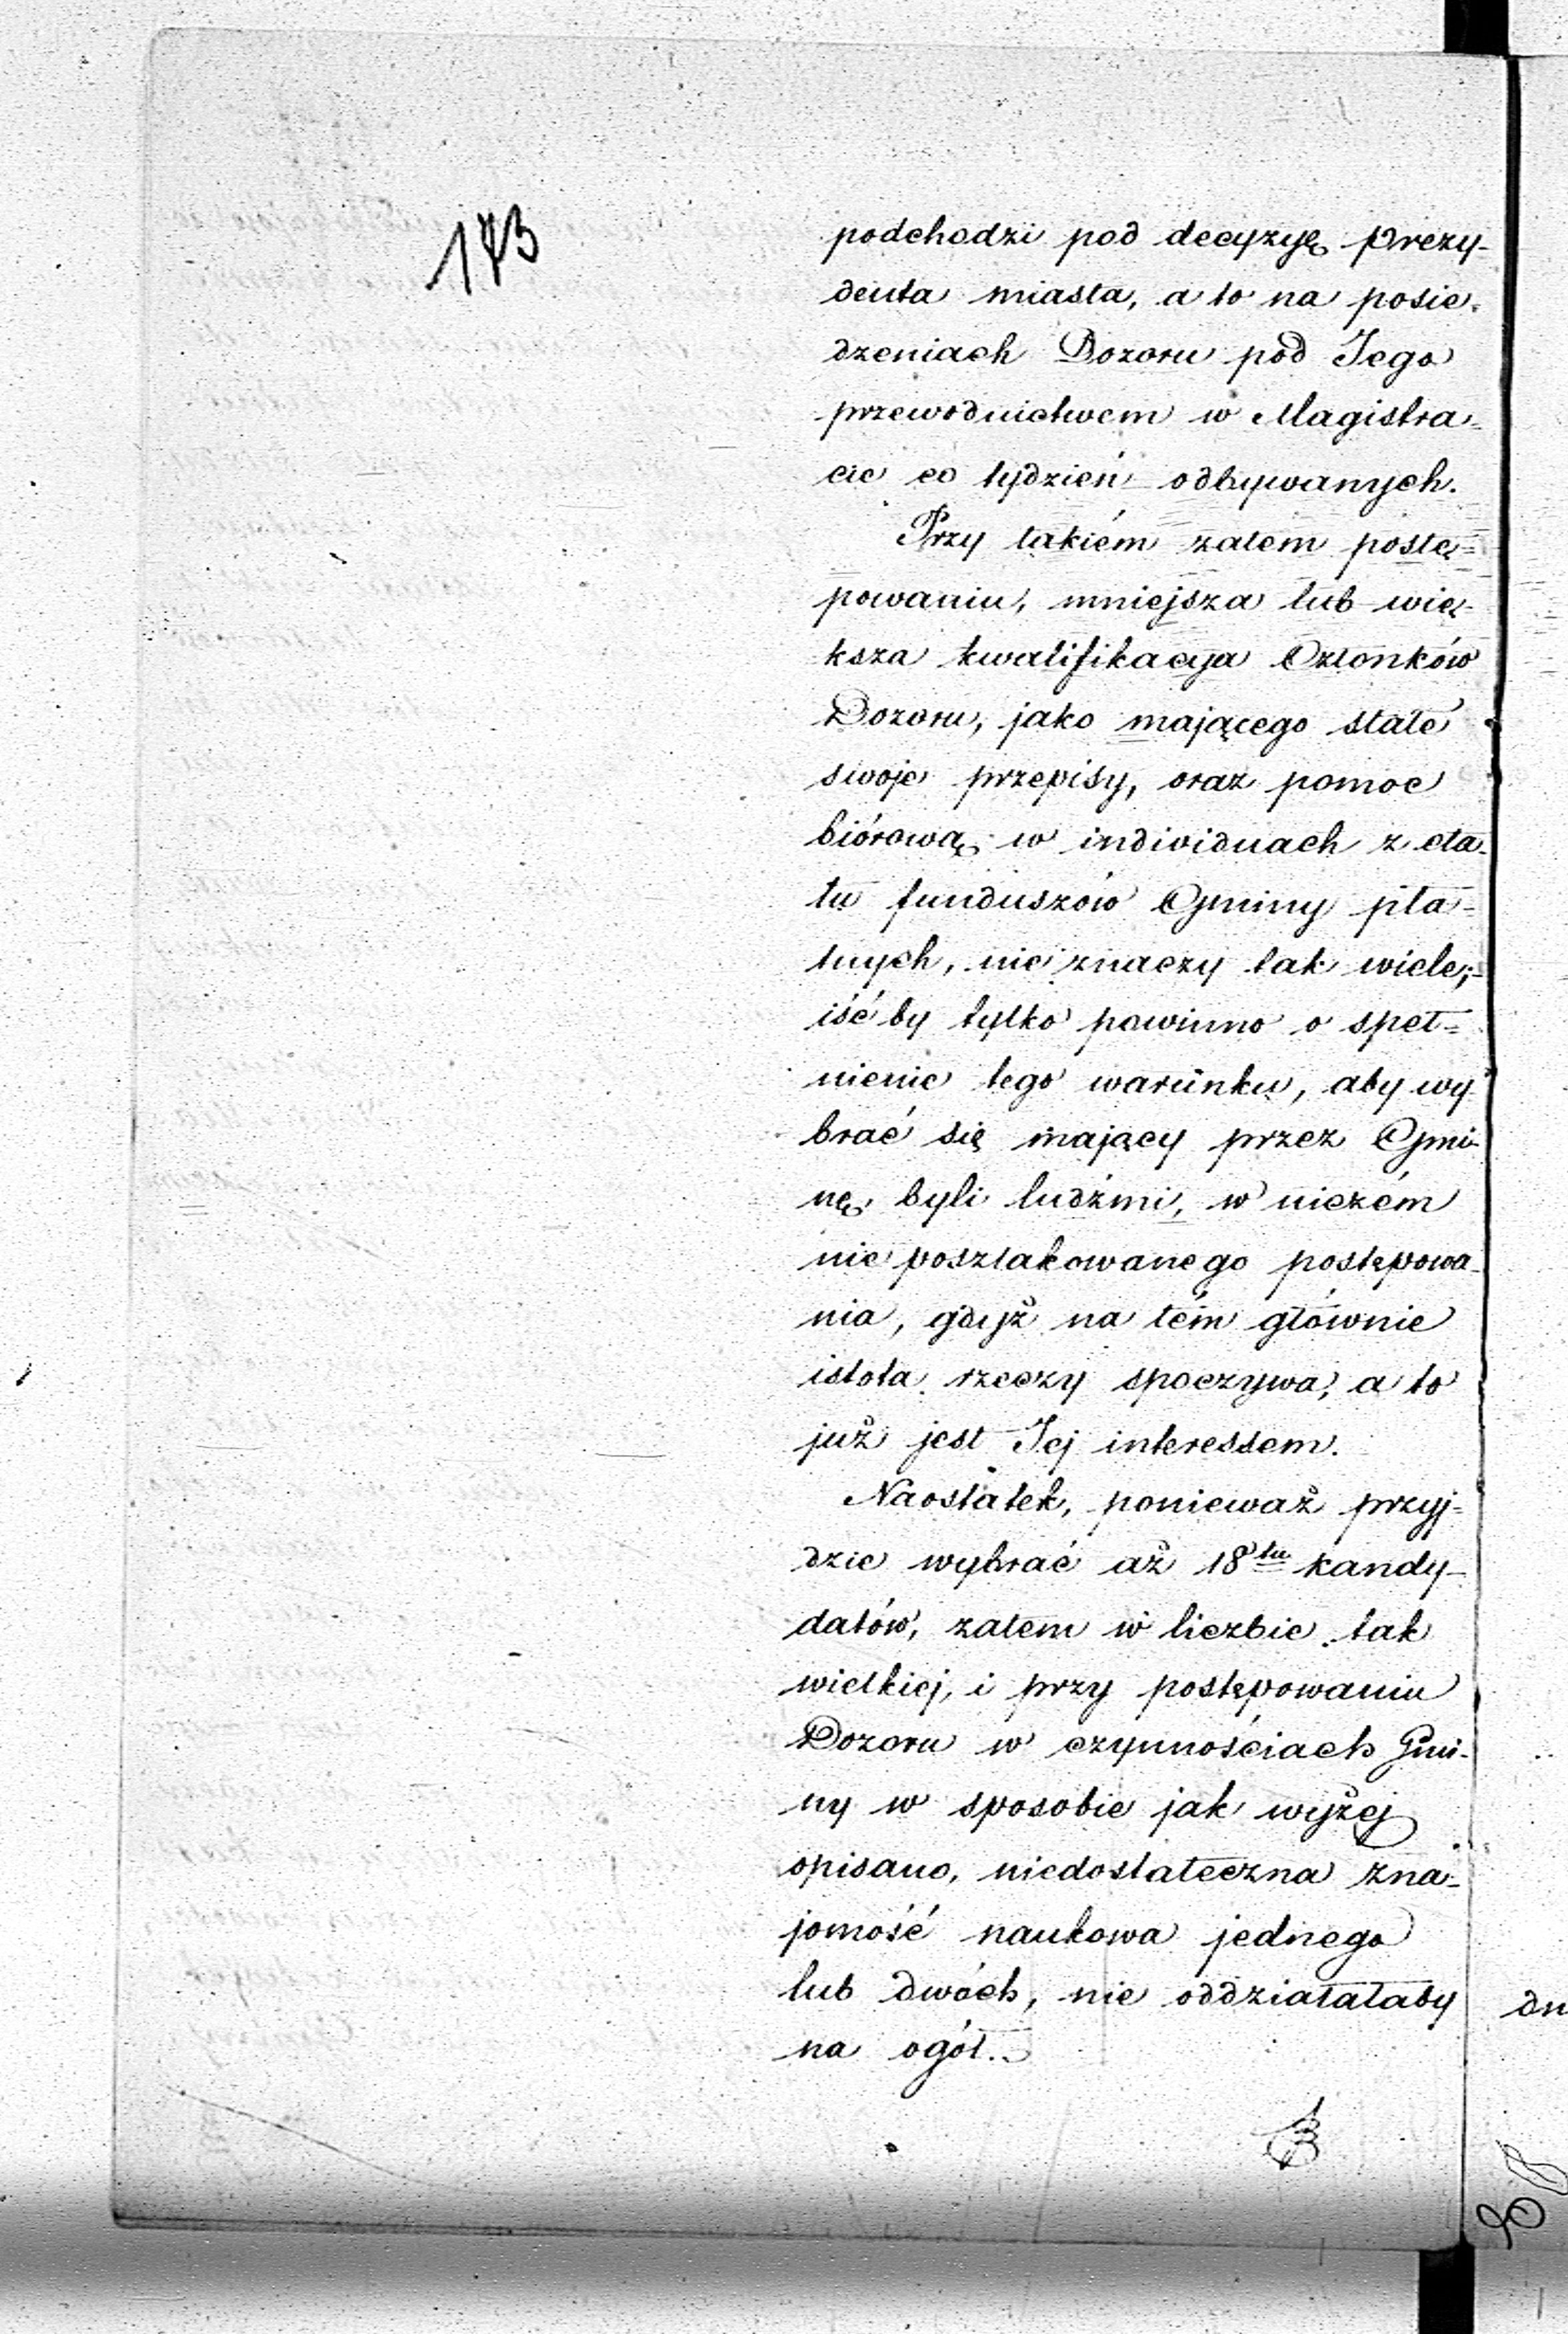 173
podchodzi pod decyzyę Prezy-
denta miasta, a to na posie-
dzeniach Dozoru pod Jego
przewodnictwem w Magistra-
cie co tydzień odbywanych.
Przy takiém zatem postę-
powaniu, mniejsza lub wię-
ksza kwalifikacyja Członków
Dozoru, jako mającego stałe
swoje przepisy, oraz pomoc
biórową w individuach z eta-
tu funduszów Gminy pła-
tnych, nie znaczy tak wiele;-
iśćby tylko powinno o speł-
nienie tego warunku, aby wy
brać się mający przez Gmi-
nę, byli ludźmi, w niczém
nie poszlakowanego postępowa-
nia, gdyż na tém głównie
istota rzeczy spoczywa, a to
już jest Jej interessem.
Naostatek, ponieważ przyj-
dzie wybrać aż 18tu kandy-
datów, zatem w liczbie tak
wielkiej, i przy postępowaniu
Dozoru w czynnościach Gmi-
ny w sposobie jak wyżej
opisano, niedostateczna zna-
jomość naukowa jednego
lub dwóch, nie oddziałałaby
na ogół.
dn